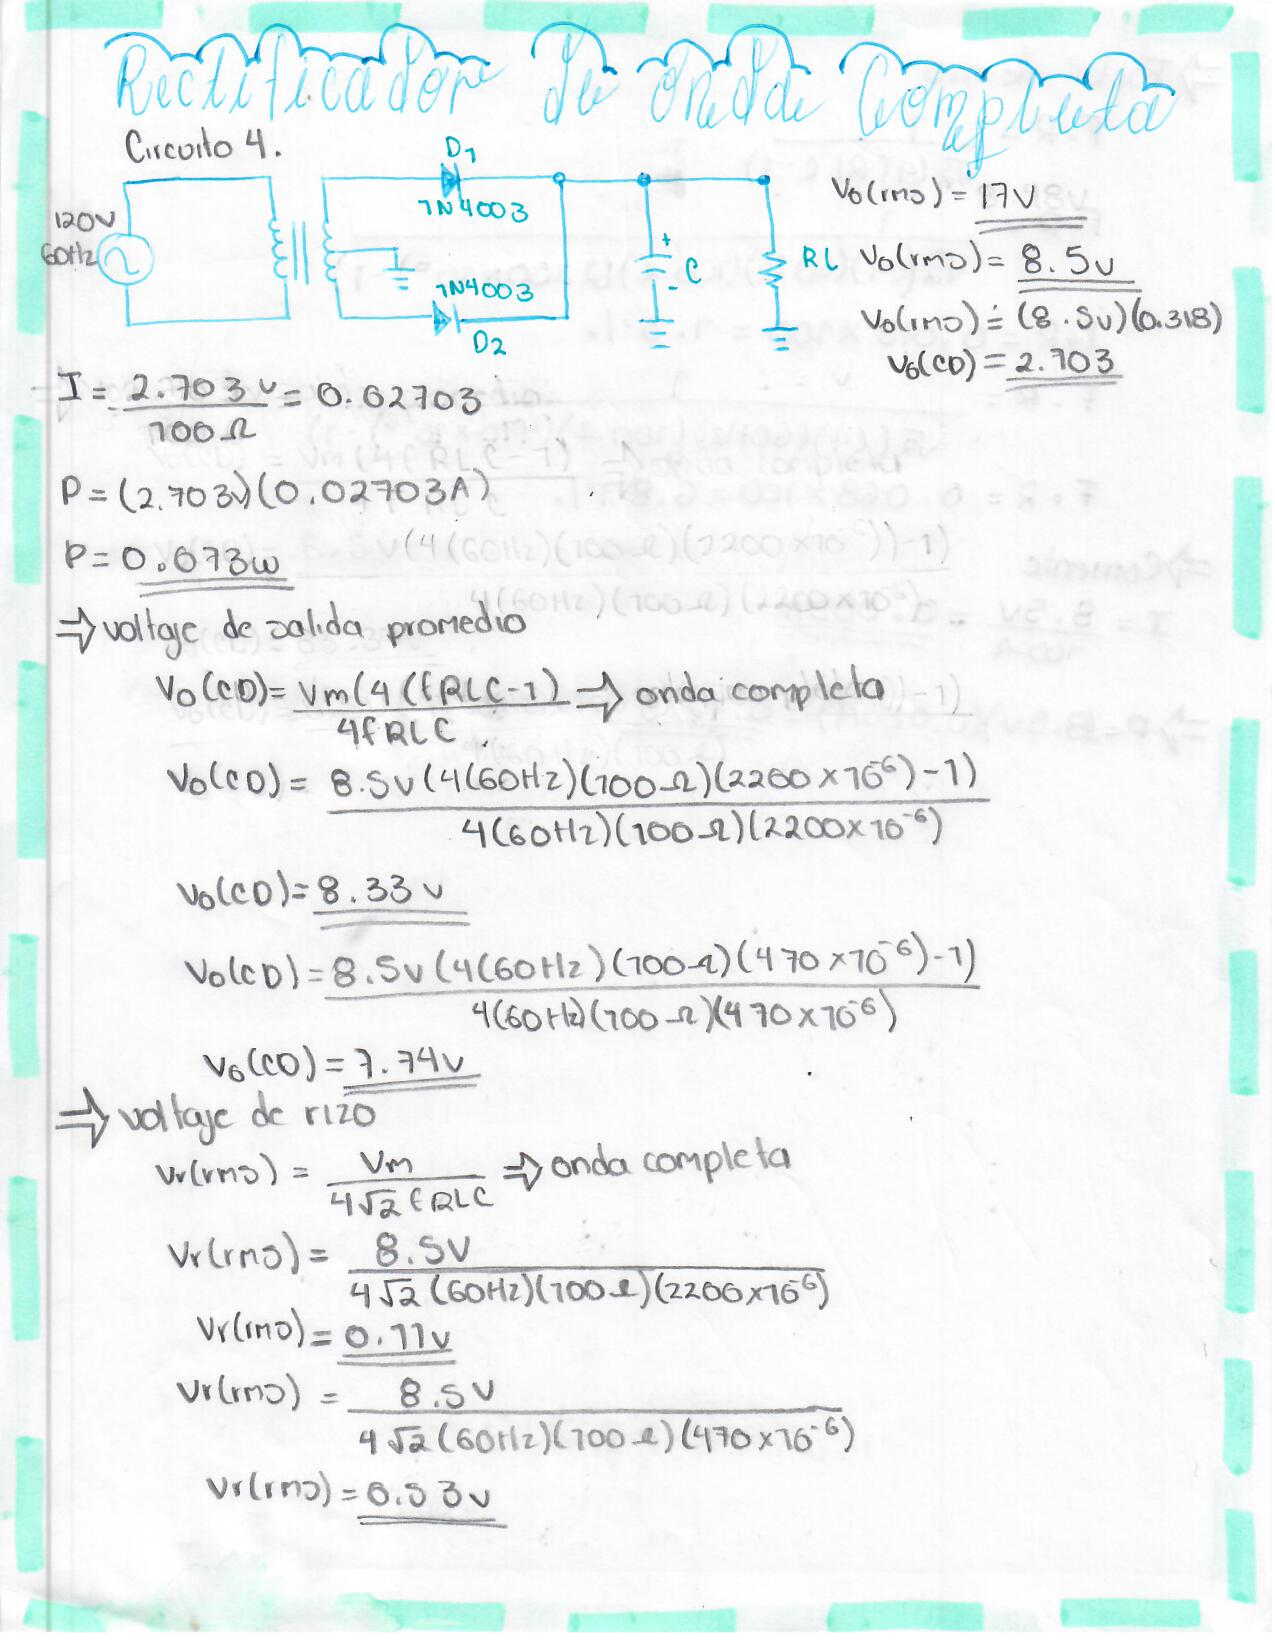 Rectificador de onda Completa
Circuito 4.
120V
60Hz
D1
1N4003
1N4003
D2
+
C
-
RL
Vo(rms) = 17V
Vo(rms) = 8.5v
Vo(rms) = (8.5v)(0.318)
Vo(CD) = 2.703
I = 2.703v / 100Ω = 0.02703
P = (2.703v)(0.02703A)
P = 0.073w
⇒ voltaje de salida promedio
Vo(CD) = Vm(4(fRLC-1) / 4fRLC ⇒ onda completa
Vo(CD) = 8.5v(4(60Hz)(100Ω)(2200x10⁻⁶)-1) / 4(60Hz)(100Ω)(2200x10⁻⁶)
Vo(CD) = 8.33v
Vo(CD) = 8.5v(4(60Hz)(100Ω)(470x10⁻⁶)-1) / 4(60Hz)(100Ω)(470x10⁻⁶)
Vo(CD) = 7.74v
⇒ voltaje de rizo
Vr(rms) = Vm / 4√2 fRLC ⇒ onda completa
Vr(rms) = 8.5V / 4√2(60Hz)(100Ω)(2200x10⁻⁶)
Vr(rms) = 0.11v
Vr(rms) = 8.5V / 4√2(60Hz)(100Ω)(470x10⁻⁶)
Vr(rms) = 0.53v